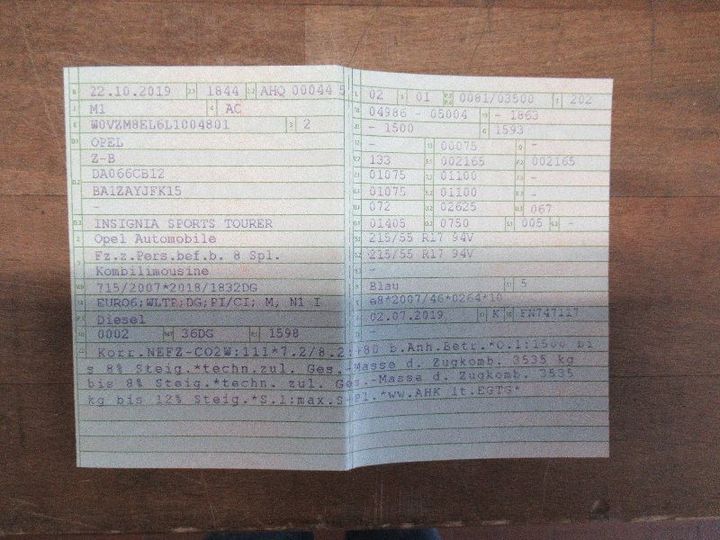 22.10.2019 1844 AHQ 00044 5
M1 AC
W0VZM8EL6L1004801 2
OPEL
Z-B
DA066CB12
BA1ZAYJFK15
-
INSIGNIA SPORTS TOURER
Opel Automobile
Fz.z.Pers.bef.b. 8 Spl.
Kombilimousine
715/2007*2018/1832DG
EURO6;WLTP;DG;PI/CI; M, N1 I
Diesel
0002 36DG 1598
02 01 0081/03500 202
04986 - 05004 - 1863
- 1500 1593
- 00075 -
133 002165 002165
01075 01100 -
01075 01100 -
072 02625 067
01405 0750 005 -
215/55 R17 94V
215/55 R17 94V
-
Blau 5
e8*2007/46*0264*10
02.07.2019 K FN747117
-
Korr.NEFZ-CO2W:111*7.2/8.2:+80 b.Anh.Betr.*O.1:1500 bi
s 8% Steig.*techn.zul. Ges.-Masse d. Zugkomb. 3535 kg
bis 8% Steig.*techn. zul. Ges.-Masse d. Zugkomb. 3535
kg bis 12% Steig.*S.1:max.S-Pl.*ww.AHK lt.EGTG*